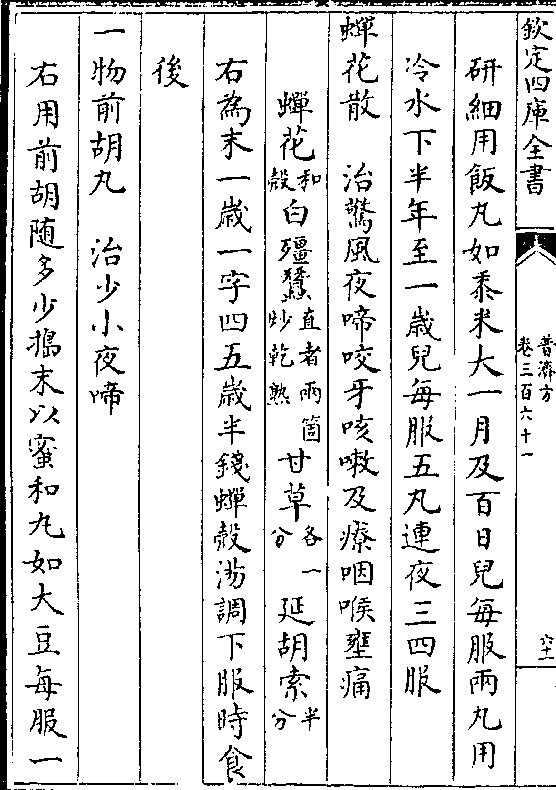 欽定四庫全書
普濟方
卷三百六十一
六十一
研細用飯丸如黍米大一月及百日兒每服兩丸用
冷水下半年至一歲兒每服五丸連夜三四服
蟬花散　治驚風夜啼咬牙咳嗽及療咽喉壅痛
蟬花和殼白殭蠶直者兩箇炒乾熟甘草各一分延胡索半分
右為末一歲一字四五歲半錢蟬殼湯調下服時食
後
一物前胡丸　治少小夜啼
右用前胡随多少搗末以蜜和丸如大豆每服一